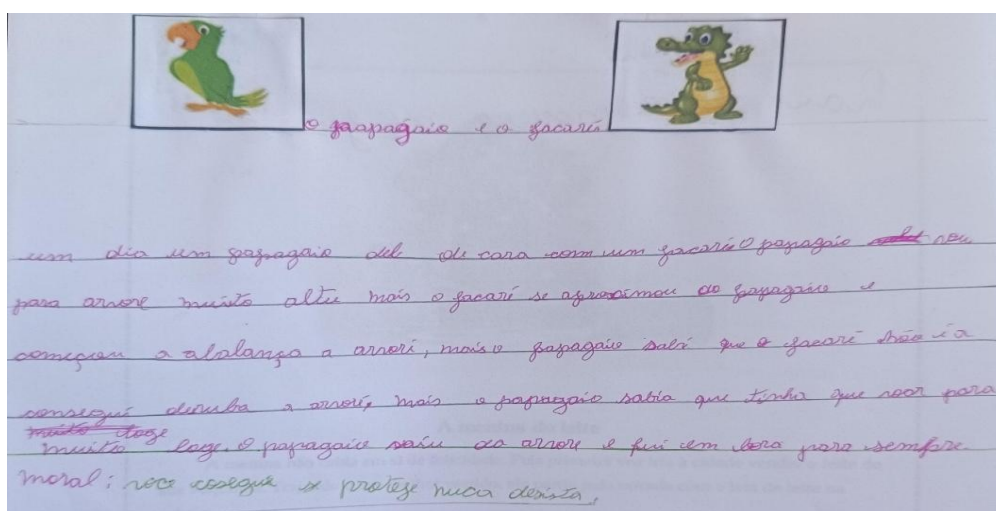 o papagaio e o jacaré
um dia um papagaio deb de cara com um jacaré O papagaio vou
para arvore muito alta mais o jacaré se aproximou do papagaio e
começou a abalança a arvori, mais o papagaio sabi que o jacaré não ia
consegui deruba a arvori, mais o papagaio sabia que tinha que voar para
muito loge. O papagaio saiu da arvore e fui em bora para sempre.
moral: voce cosegue se protege nuca desista,